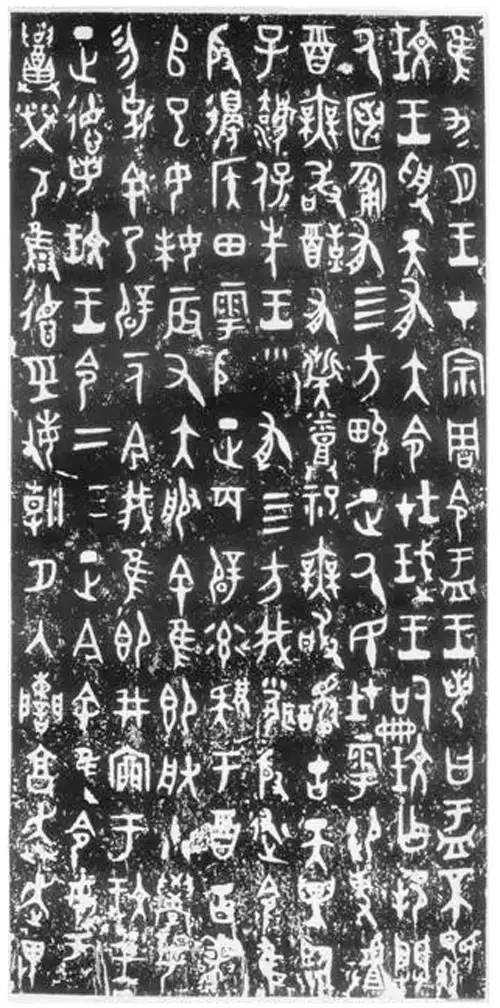 隹九月王才宗周令盂王若曰盂不顯
玟王受天有大令在珷王嗣玟乍邦闢
厥匿匍有四方畯正厥民在雩御事
酉無敢酖有祡烝祀無敢醻古天異臨
子灋保先王有四方我聞殷述令隹
殷邊侯田雩殷正百辟率肄于酉古喪
𠂤巳女妹辰又大服余隹即朕小學女
勿𠨘余乃辟一人今我隹即井㐭于玟王
正德若玟王令二三正今余隹令女盂
召榮敬雝德巠敏朝夕入讕享奔走畏